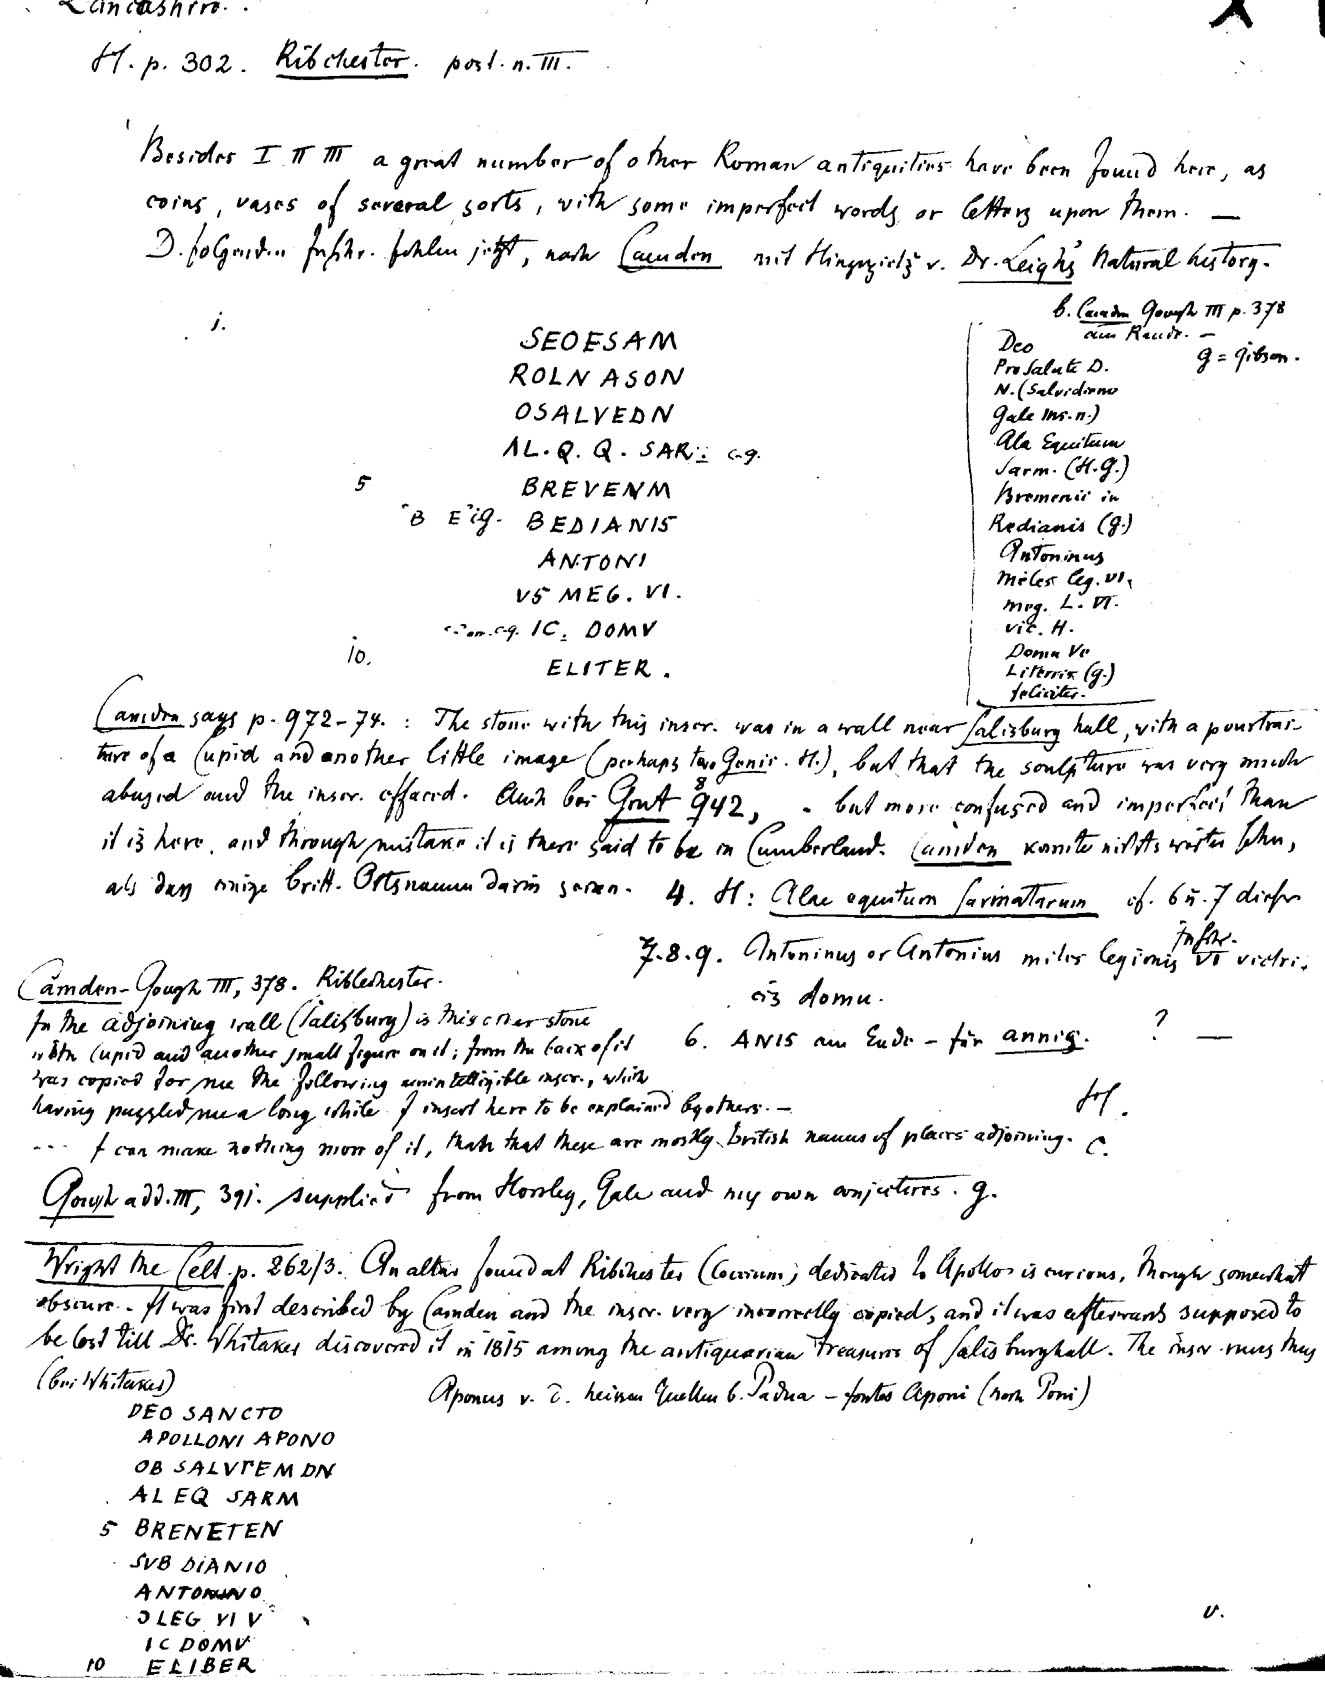 Lancashire.
H. p. 302. Ribchester. post. n. III.
Besides I II III a great number of other Roman antiquities have been found here, as
coins, vases of several sorts, with some imperfect words or letters upon them. —
D. folgenden Inschr. fehlen jetzt, nach Camden mit Hinzuziehg v. Dr. Leigh's Natural history.
b. Camden Gough III p. 378
am Rande. —
g = gibson.
1.
SEOESAM
ROLNASON
OSALVEDN
AL. Q. Q. SAR c.g.
5 BREVENM
B E ig. BEDIANIS
ANTONI
VS MEG. VI.
c.g. IC. DOMV
10. ELITER.
Deo
Pro Salute D.
N. (Salvidieno
Gale Ms. n.)
Ala Equitum
Sarm. (H. G.)
Bremenii in
Redianis (g.)
Antoninus
Miles leg. VI.
meg. L. VI.
vic. H.
Domu Ve
Literris (g.)
feliciter.
Camden says p. 972-74. : The stone with this inscr. was in a wall near Salisbury hall, with a pourtrai-
ture of a Cupid and another little image (perhaps two Genii. H.), but that the sculpture was very much
abused and the inscr. effaced. Auch bei Grut 942, 8 - but more confused and imperfect than
it is here, and through mistake it is there said to be in Cumberland. Camden konnte nichts weiter sehn,
als dass einige britt. Ortsnamen darin seien. 4. H: Alae equitum Sarmatarum cf. 6 u. 7 dieser
Inschr.
7.8.9. Antoninus or Antonius miles legionis VI victri.
cis domu.
6. ANIS am Ende - für annis. ? —
H.
Camden-Gough III, 378. Riblechester.
In the adjoining wall (Salisbury) is this other stone
with Cupid and another small figure on it; from the back of it
was copied for me the following unintelligible inscr., which
having puzzled me a long while I insert here to be explained by others. —
... I can make nothing more of it, than that these are mostly British names of places adjoining. C.
Gough add. III, 391. supplied from Horsley, Gale and my own conjectures. g.
Wright the Celt p. 262/3. An altar found at Ribchester (Coccium) dedicated to Apollo is curious, though somewhat
obscure. - It was first described by Camden and the inscr. very incorrectly copied, and it was afterwards supposed to
be lost till Dr. Whitaker discovered it in 1815 among the antiquarian treasures of Salisburyhall. The inscr. runs thus
(bei Whitaker)
Aponus v. d. heissen Quellen b. Padua - fontes Aponi (noch Poni)
DEO SANCTO
APOLLONI APONO
OB SALVTEM DN
AL EQ SARM
5 BRENETEN
SVB DIANIO
ANTONINO
Ↄ LEG VI V
IC DOMV
10 ELIBER
v.